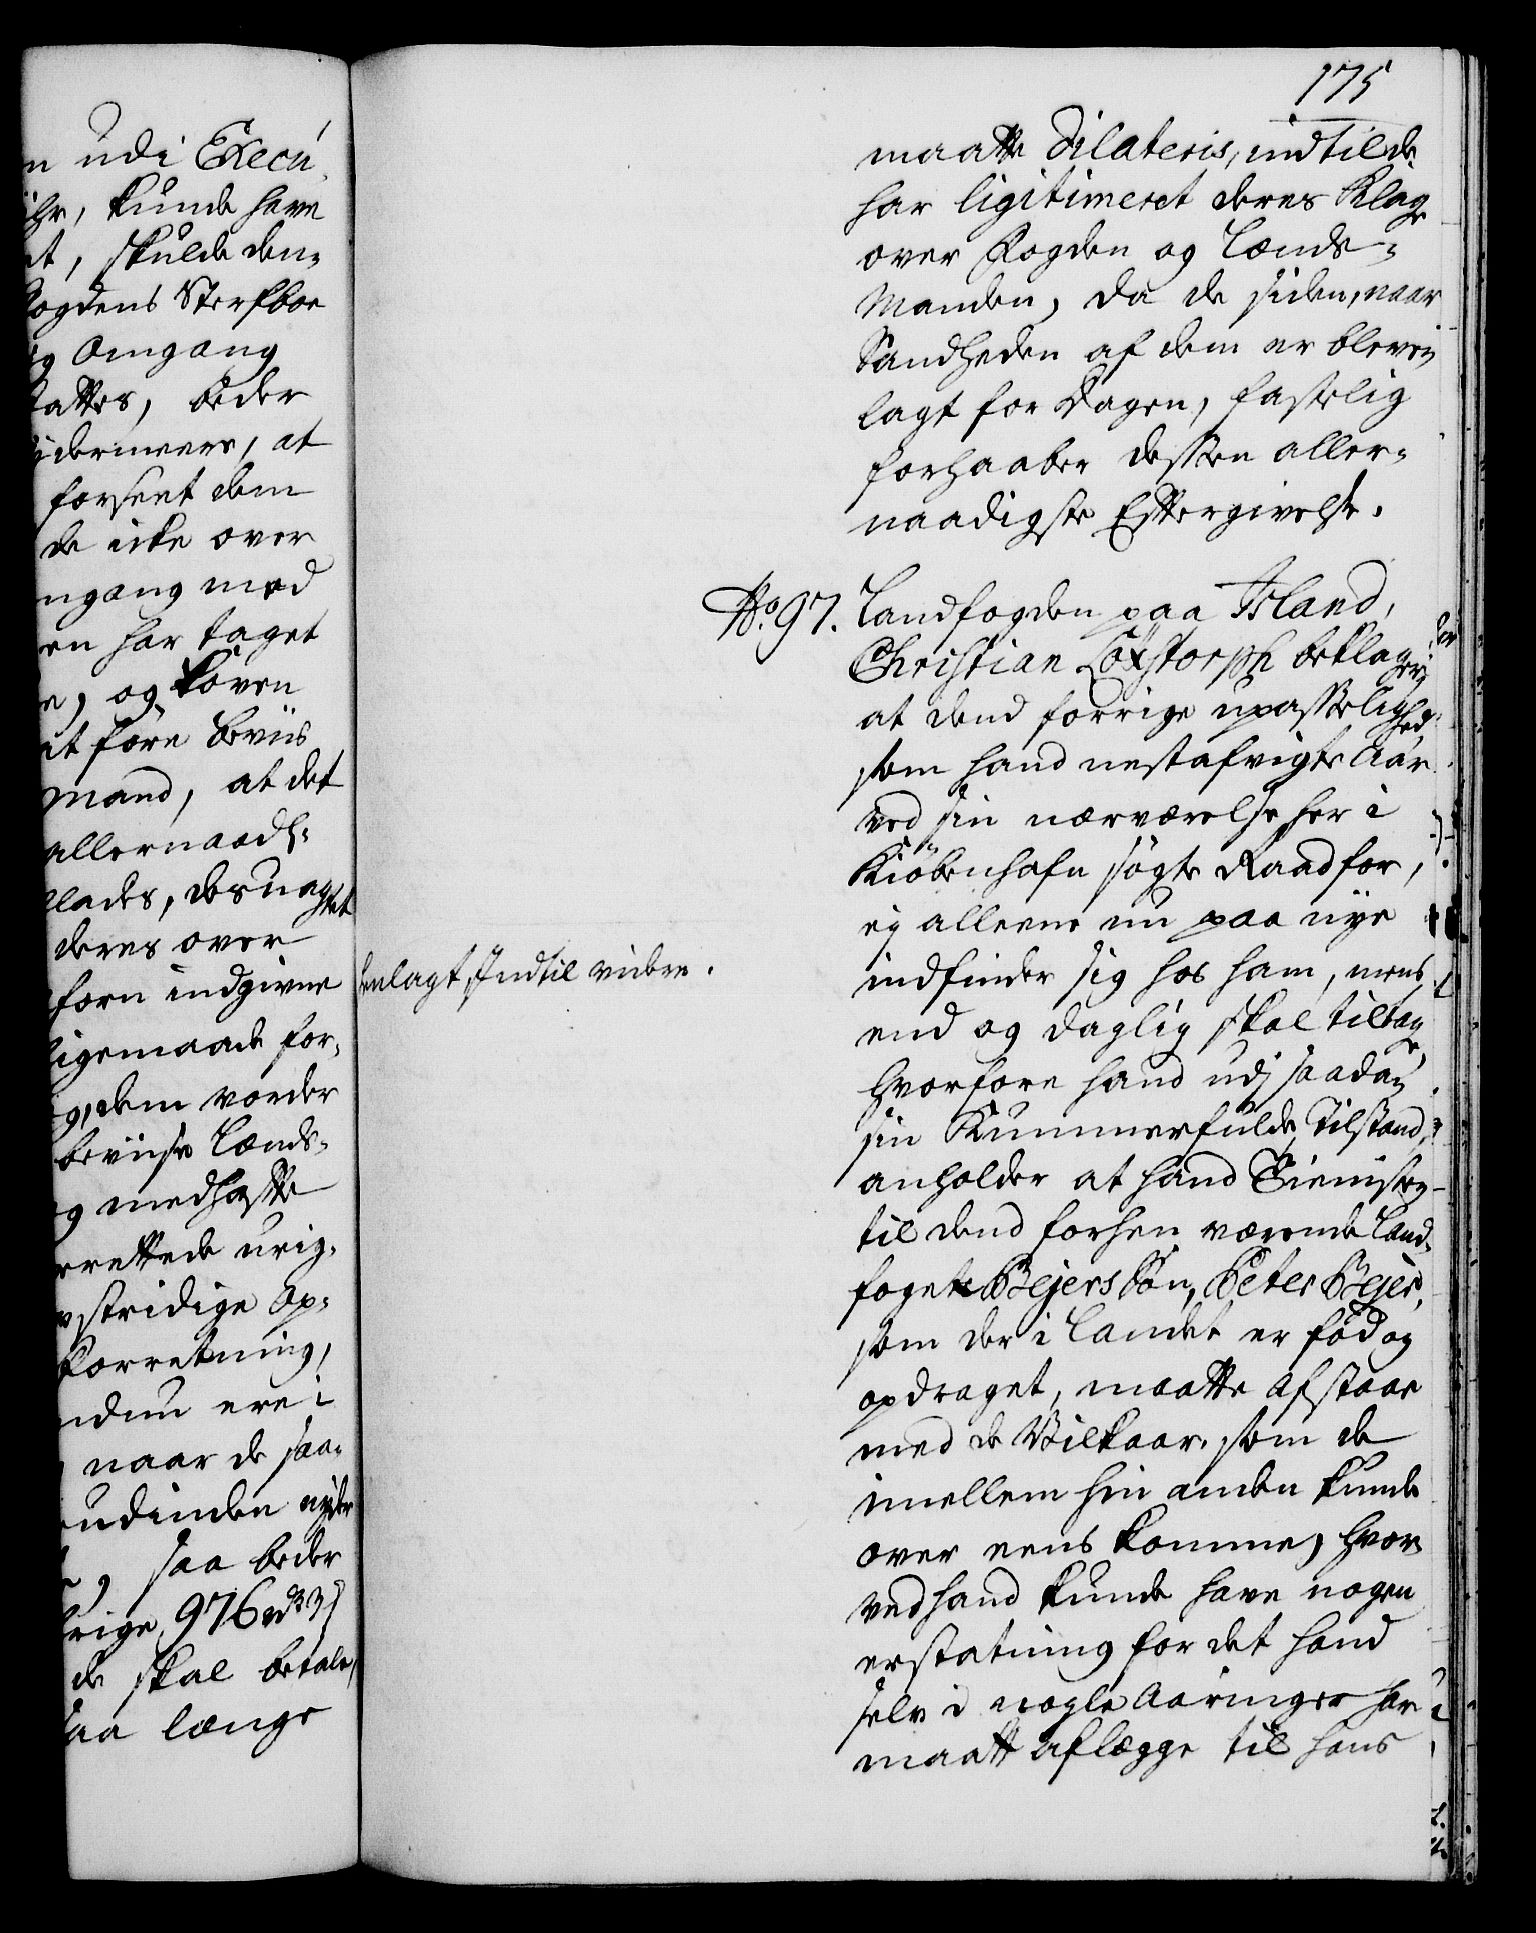 n udi Execu-
ihr, kunde have
et, skulde den-
ogdens Sterfboe
ig Omgang
tattes, beder
idermeere, at
forseet dem
de icke over
ngang med
en har taget
e, og Loven
at føre beviis
mand, at det
allernaadh:
llades, desuagtet
deres over
forn indgivne
ligemaade for-
g, dem vorder
beviise Lænds-
g medhafte
rettede urig-
vstridige Op-
forretning,
ndnu ere i
naar de saa-
endinden nyder
, saa beder
rige, 976 rdr 3 s
de skal betale,
saa længe
175
maatte dilateris, indtil de
har ligitimeret deres Klage
over Fogden og Lænds-
Manden, da de siden, naar
Sandheden af dem er bleven
lagt for Dagen, fastelig
forhaaber dessen aller-
naadigste Efftergivelse.
No. 97. Landfogden paa Island,
Christian Löxstorph beklager,
at dend forrige upasselighed,
som hand nestafvigte Aar
ved sin nærværelse her i
Kiöbenhafn søgte Raad for,
ej alleene nu paa nye
indfinder sig hos ham, mens
end og daglig skal tiltage,
hvorfore hand udj saadan
sin Kummerfulde Tilstand,
anholder at hand Tienisten
til dend forhen værende Land-
fogets Bejers Søn, Peter Bejer,
som der i Landet er fød og
opdraget, maatte afstaae
med de Vilkaar, som de
imellem hin anden kunde
over eens komme, hvor-
ved hand kunde have nogen
erstatning for det hand
selv i nogle Aaringer har
maatt aflægge til hans
henlagt, Indtil videre.